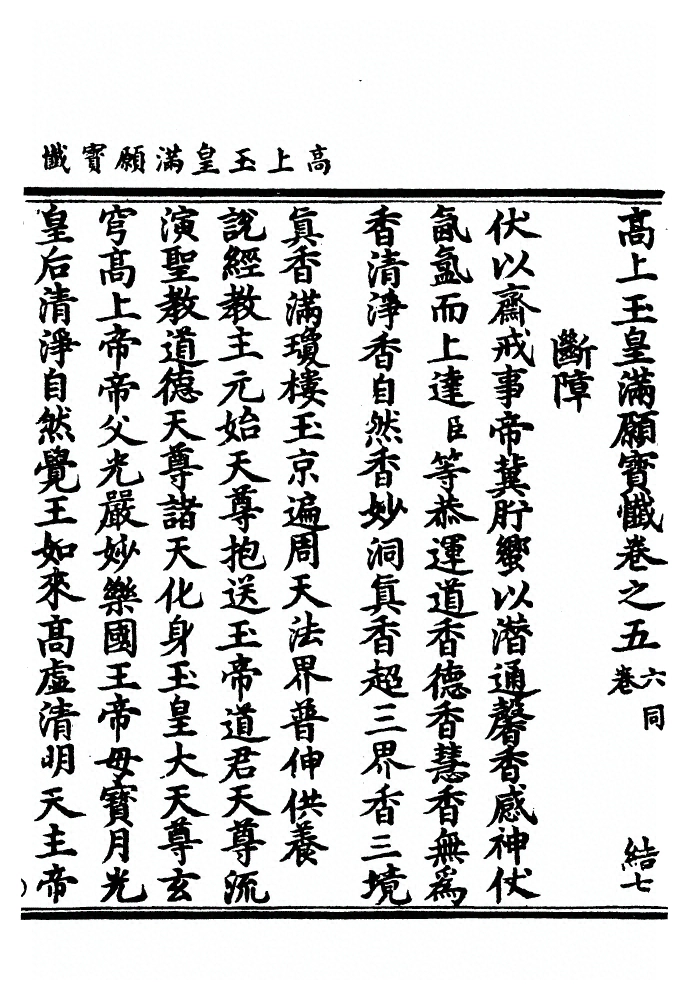 高上玉皇滿願寶懺
高上玉皇滿願寶懺卷之五 六卷同 結七
斷障
伏以齋戒事帝冀肸蠁以潛通馨香感神伏
氤氳而上達臣等恭運道香德香慧香無為
香清淨香自然香妙洞真香超三界香三境
真香滿瓊樓玉京遍周天法界普伸供養
說經教主元始天尊抱送玉帝道君天尊流
演聖教道德天尊諸天化身玉皇大天尊玄
穹高上帝帝父光嚴妙樂國王帝母寶月光
皇后清淨自然覺王如來高虛清明天主帝